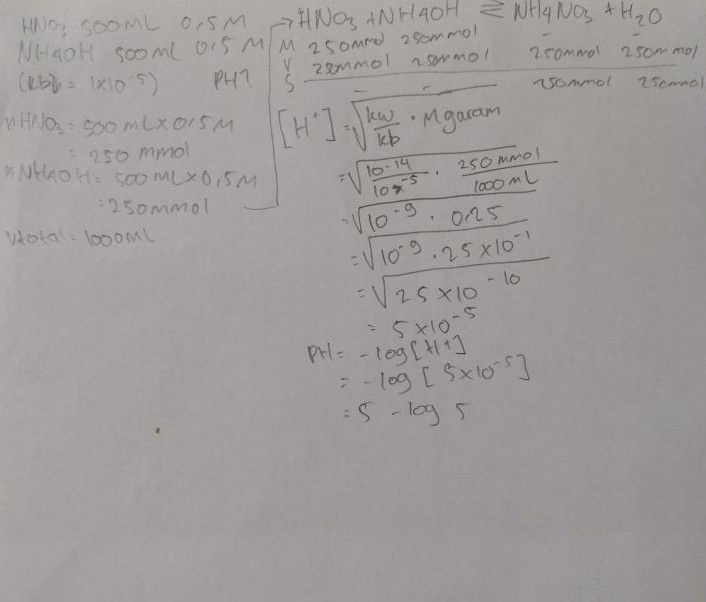 HNO3 500ML 0,5 M
NH4OH 500ML 0,5 M
(kb = 1x10-5) PH?
nHNO3 = 500 mL x 0,5 M
= 250 mmol
n NH4OH = 500 mL x 0,5 M
= 250mmol
Vtotal = 1000mL
→ HNO3 + NH4OH ⇄ NH4NO3 + H2O
M 250mmol 250mmol - -
250mmol 250mmol 250mmol 250mmol
S - - 250mmol 250mmol
[H+] = √ kw/kb . M garam
= √ 10-14/10-5 . 250 mmol/1000 mL
= √ 10-9 . 0,25
= √ 10-9 . 25 x 10-1
= √ 25 x 10-10
= 5 x 10-5
PH = - log [H+]
= - log [ 5x10-5 ]
= 5 - log 5